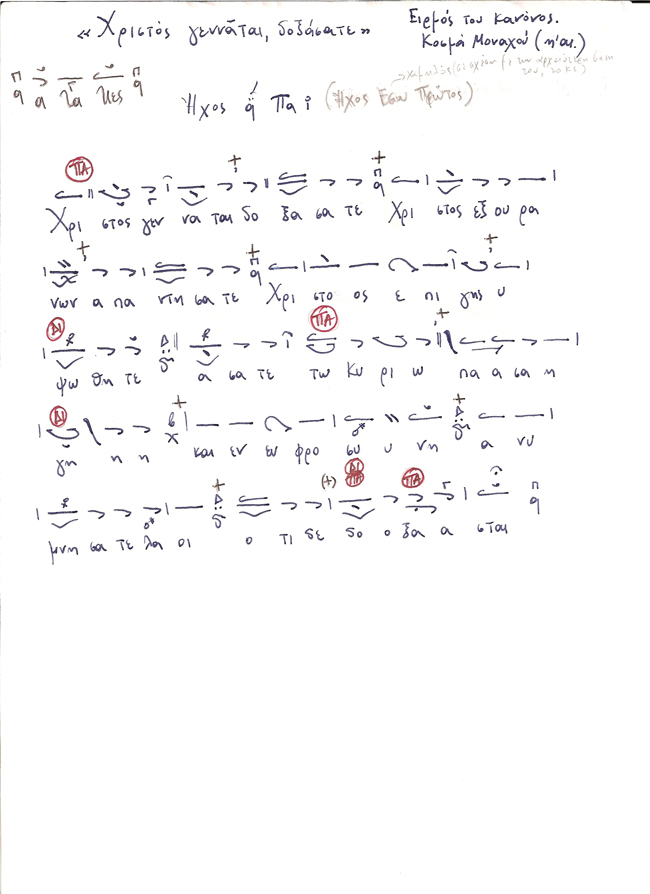 «Χριστός γεννᾶται, δοξάσατε»
Ειρμός του κανόνος.
Κοσμᾶ Μοναχού (η'αι.)
π
q α να νες π
q
Ἦχος ᾳ Πα (Ἦχος Εσω Πρῶτος)
ΠΑ
Χρι στος γεν να ται δο ξα σα τε Χρι στος εξ ου ρα
νων α πα ντη σα τε Χρι στο ος ε πι γης υ
ΔΙ ΠΑ
ψω θη τε α σα τε τω Κυ ρι ω πα α σα η
ΔΙ
γη η η και εν ευ φρο συ υ νη α νυ
ΔΙ ΠΑ ΠΑ
μνη σα τε λα οι ο τι δε δο ο ξα α σται